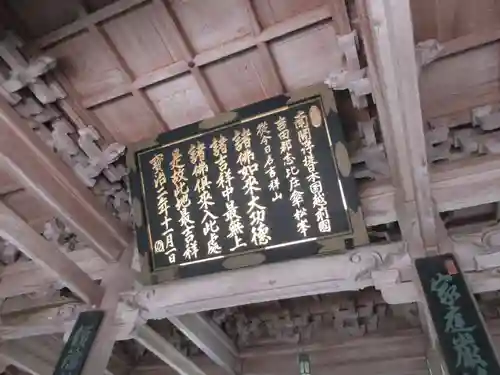 南閻浮提日本國越前國
吉田郡志比庄傘松峯
從今日名吉祥山
諸佛如來大功德
諸吉祥中最無上
諸佛俱來入此處
是故此地最吉祥
寶治二年十一月一日
家庭嚴